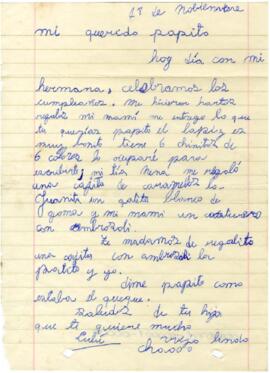 1º de Nobiembre
mi querido papito
hoy día con mi
hermana, celebramos los
cumpleaños. Me hicieron hartos
regalos mi mamá me entrego lo que
tu querías papito el lapiz es
muy bonito tiene 6 chinitos de
6 colores lo ocuparé para
escribirte, mi tía nena me regaló
una cajita de caramelos la
Juanita un gatito blanco de
goma y mi mami un
con ambrosoli
te madamos de regalito
una cajita con ambrosoli la
partito y yo.
dime papito como
estaba el queque.
saludos de tu hija
que te quiene mucho
Lulú viejo lindo
chaooo